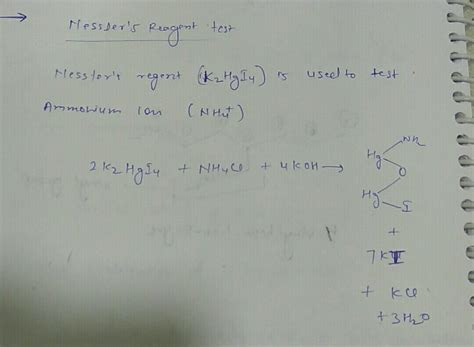 → Nessler's Reagent test
Nessler's regent (K2HgI4) is used to test
Ammonium Ion (NH4+)
2K2HgI4 + NH4Cl + 4KOH →
Hg NH2
O
Hg I
+
7KI
+ KCl
+3H2O